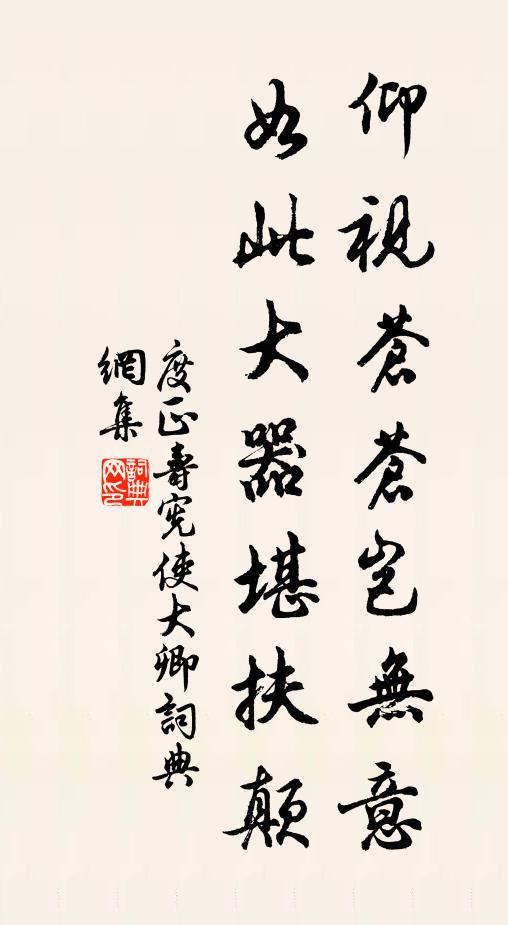 仰視蒼蒼豈無意
如此大器堪扶顛
度正壽宪使大卿詞典
網集
詞典網印